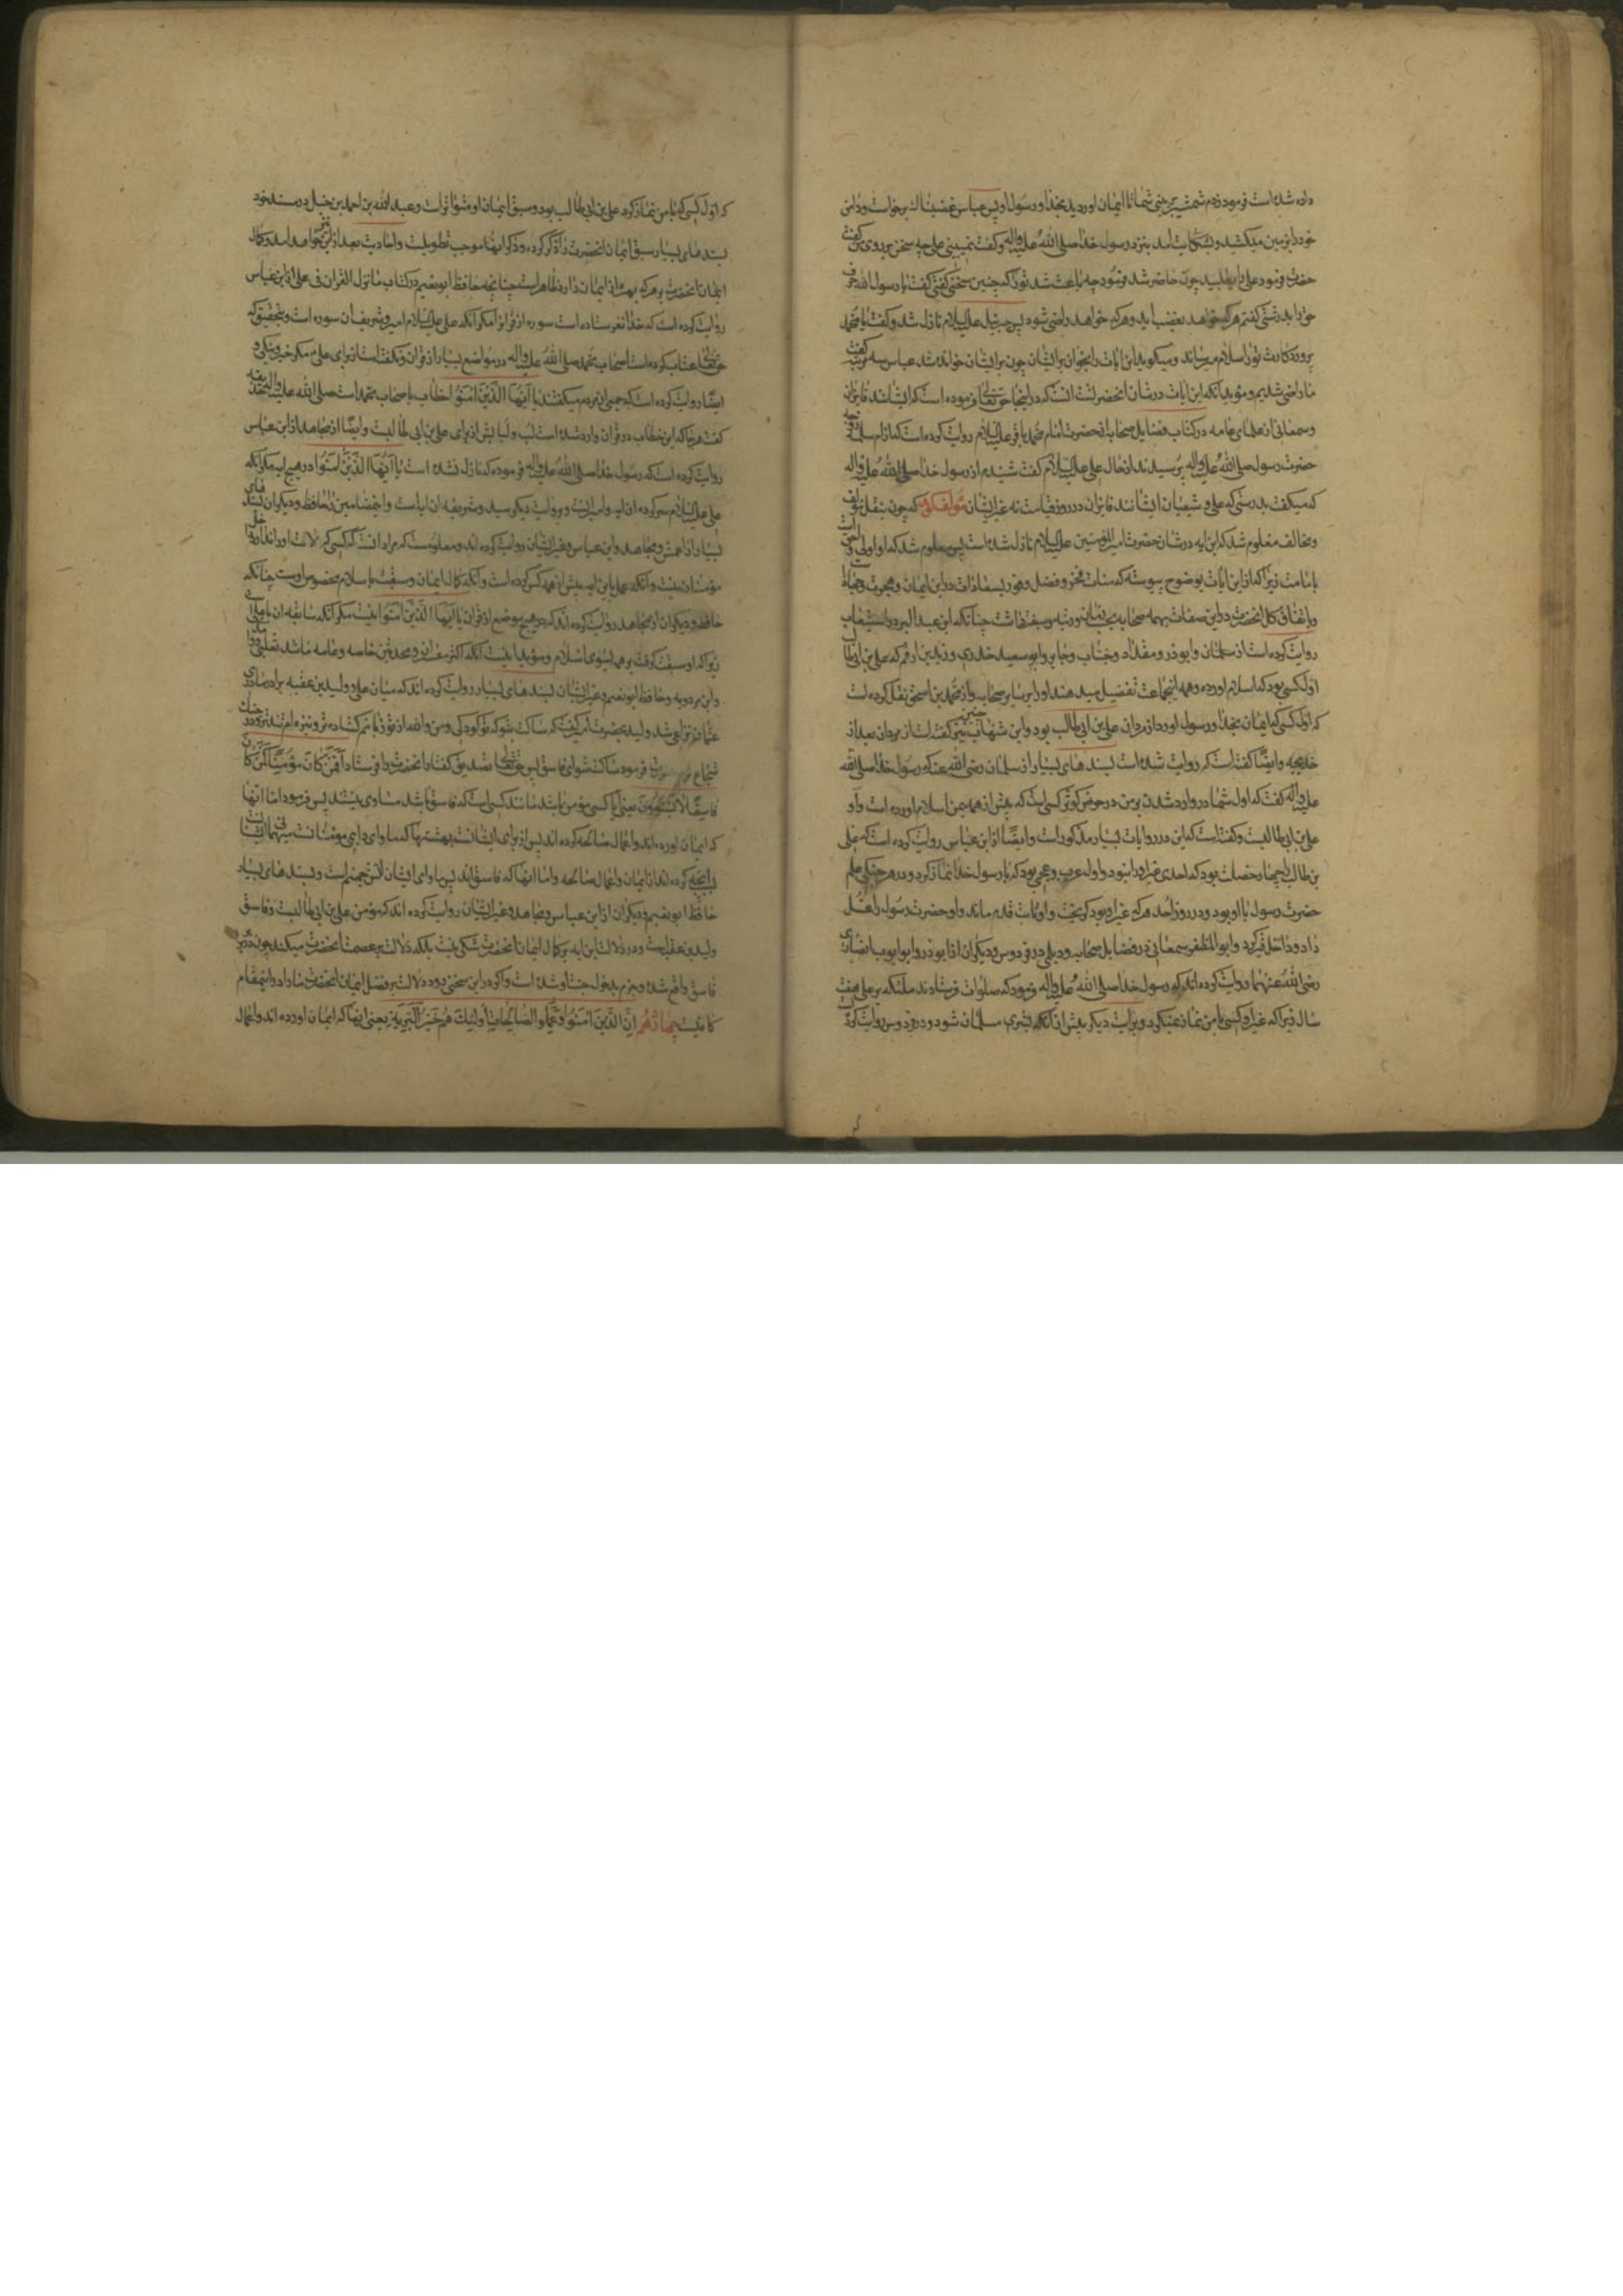 داده شده است فرمود زدم شمشیر بر بینی شما تا ایمان اوردید بخدا و رسول او پس عباس غضبناک برخواست و دامن
خود را بزمین میکشید و بشکایت امد بنزد رسول خدا صلی الله علیه واله و گفت نمیبینی علی چه سخن بر روی من گفت
حضرت فرمود علی را بطلبید چون حاضر شد فرمود چه باعث شد تو را که چنین سختی گفتی گفت یا رسول الله حرف
حق را بدرشتی گفتم هر که خواهد بغضب اید و هر که خواهد راضی شود پس جبرئیل علیه السلام نازل شد و گفت یا محمد
پروردکارت تو را سلام میرساند و میکوید این ایات را بخوان بر ایشان چون بر ایشان خوانده شد عباس سه مرتبه گفت
ما راضی شدیم و مؤید انکه این ایات در شان انحضرتست انست که در اینجا حق تعالی فرموده است که ایشانند فایزان
وسمعانی از علمای عامه در کتاب فضایل صحابه از حضرت امام محمد باقر علیه السلام روایت کرده است که از ام سلمه زوجه
حضرت رسول صلی الله علیه واله پرسیدند از حال علی علیه السلام گفت شنیدم از رسول خدا صلی الله علیه واله
که میکفت بدرستی که علی و شیعیان ایشانند فایزان در روز قیامت نه غیر ایشان مولف کوید که چون بنقل مؤلف
و مخالف معلوم شد که این ایه در شان حضرت امیرالمؤمنین علیه السلام نازل شده است پس معلوم شد که او اولی و احق است
بامامت زیرا که از این ایات بوضوح پیوسته که مناط فخر و فضل و فوز بسعادات در دین ایمان و هجرت و جهاد است
و باتفاق کل انحضرت در این صفات بهمه صحابه مزیت و سبقت داشت چنانکه ابن عبد البر در استیعاب
روایت کرده است از سلمان و ابوذر و مقداد و خباب و جابر و ابو سعید خدری و زید بن ارقم که علی بن ابی طالب
اول کسی بود که اسلام اورده و همه اینجماعت تفضیل میدهند او را بر سایر صحابه و از محمد بن اسحق نقل کرده است
که اول کسی که ایمان بخدا و رسول اورد از مردان علی بن ابی طالب بود و ابن شهاب نیز چنین گفته است از مردان بعد از
خدیجه و ایضا گفته است که روایت شده است بسندهای بسیار از سلمان رضی الله عنه که رسول خدا صلی الله
علیه واله گفت که اول شما در وارد شدن بر من در حوض کوثر کسی است که پیش از همه بمن اسلام اورده است و او
علی بن ابی طالبست و گفته است که این در روایات بسیار مذکور است و ایضا از ابن عباس روایت کرده است که علی
بن طالب را چهار خصلت بود که احدی غیر او را نبود و اول عرب و عجمی بود که با رسول خدا نماز کرد و در هر جنکی علم
حضرت رسول با او بود و در روز احد هر که غیر او بود کریخت و او ثابت قدم ماند و او حضرت رسول را غسل
داد و داخل قبر کرد و ابو المظفر سمعانی در فضایل صحابه و دیلمی در فردوس و دیکران از ابوذر و ابو ایوب انصاری
رضی الله عنهما روایت کرده اند که رسول خدا صلی الله علیه واله فرمود که صلوات فرستادند ملئکه بر علی هفت
سال زیرا که غیر او کسی با من نماز نمیکرد و بروایت دیکر پیش از انکه بشری مسلمان شود و در فردوس روایت کرده
که اول کسی که با من نماز کرد علی بن ابی طالب بود و سبق ایمان او متواتر است و عبد الله بن احمد بن حنبل در مسند خود
بسندهای بسیار سبق ایمان انحضرت را ذکر کرده و ذکر انها موجب تطویلست و احادیث بعد از این نیز خواهد امد و کمال
ایمان انحضرت بر هر که بهره از ایمان دارد ظاهر است چنانچه حافظ ابو نعیم در کتاب ما نزل القران فی علی از ابن عباس
روایت کرده است که خدا نفرستاده است سوره از قران مکر انکه علی علیه السلام امیر و شریف ان سوره است و بتحقیق که
حق تعالی عتاب کرده است اصحاب محمد صلی الله علیه واله در مواضع بسیار از قران و نکفته است از برای علی مکر خیر و نیکی و
ایضا روایت کرده است که جمعی از مردم میکفتند یا ایها الذین امنوا خطاب با صحاب محمد است صلی الله علیه واله حذیفه
گفت هر جا که این خطاب در قران وارد شده است لب و لبابش از برای علی بن ابی طالبست و ایضا از مجاهد از ابن عباس
روایت کرده است که رسول خدا صلی الله علیه واله فرموده که نازل نشده است یا ایها الذین امنوا در هیچ ایه مکر انکه
علی علیه السلام سرکرده ان ایه و امیر انست و بروایت دیکر سید و شریف ان ایه است و اینمضامین را حافظ و دیکران بسندهای
بسیار از اعمش و مجاهد و ابن عباس و غیر ایشان روایت کرده اند و معلومست که مراد انست که کسی که جلالت او را ندارد
مؤمنان نیست و انکه عمل باین ایه پیش از همه کس کرده است و انکه کمال ایمان و سبقت باسلام مخصوص اوست چنانکه
حافظ و دیکران از مجاهد روایت کرده اند که در هیچ موضع از قران یا ایها الذین امنوا نیست مکر انکه سابقه ان با علی است
زیرا که او سبقت گرفت بر همه بسوی اسلام و مؤید اینست انکه اکثر مفسران و محدثین خاصه و عامه مانند ثعلبی و واحدی
و ابن مردویه و حافظ ابو نعیم و غیر ایشان بسندهای بسیار روایت کرده اند که میان علی و ولید بن عقبه برادر مادری
عثمان نزاعی شد ولید بحضرت امیر گفت که ساکت شو که تو کودکی و من والله از تو زبانم کشاده تر و نیزه ام تندتر و در جنک
شجاع ترم حضرت فرمود ساکت شو ای فاسق پس حق تعالی تصدیق گفتار انحضرت را فرستاد افمن کان مؤمنا کمن کان
فاسقا لا یستوون یعنی ایا کسی مؤمن باشد مانند کسی است که فاسق باشد مساوی نیستند پس فرمود اما انها
که ایمان اورده اند و اعمال صالحه کرده اند پس از برای ایشانست بهشتها که ماوای دایمی مؤمنانست
بانچه کرده اند از ایمان و اعمال صالحه و اما انها که فاسق اند پس ماوای ایشان اتش جهنم است و بسندهای بسیار
حافظ ابو نعیم و دیکران از ابن عباس و مجاهد و غیر ایشان روایت کرده اند که مؤمن علی بن ابی طالبست و فاسق
ولید بن عقبه است و در دلالت این ایه بر کمال ایمان انحضرت شکی نیست بلکه دلالت بر عصمت انحضرت میکند چون در برابر
فاسق واقع شده و جزم بدخول جنت او شده است و اکر در این سخنی بود دلالت بر فضل ایمان انحضرت ما را در اینمقام
کافیست چهاردهم ان الذین امنوا و عملوا الصالحات اولئک هم خیر البریة یعنی انها که ایمان اورده اند و اعمال